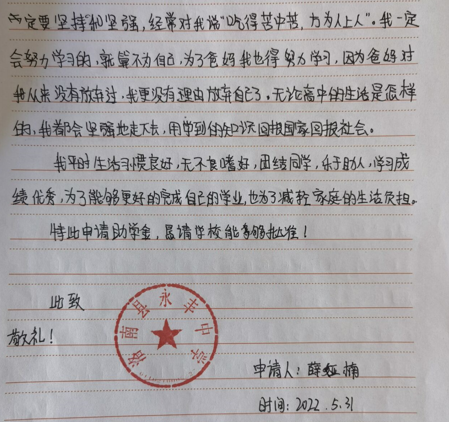 一定要坚持和坚强，经常对我说“吃得苦中苦，方为人上人”。我一定
会努力学习的，就算不为自己，为了爸妈我也得努力学习，因为爸妈对
我从来没有放弃过，我更没有理由放弃自己了。无论高中的生活是怎样
的，我都会坚强地走下去，用学到的知识回报国家回报社会。
我平时生活习惯良好，无不良嗜好，团结同学，乐于助人，学习成
绩优秀，为了能够更好的完成自己的学业，也为了减轻家庭的生活负担。
特此申请助学金，恳请学校能够批准！
此致
敬礼！
洛南县永丰中学
申请人：薛娅楠
时间：2022.5.31